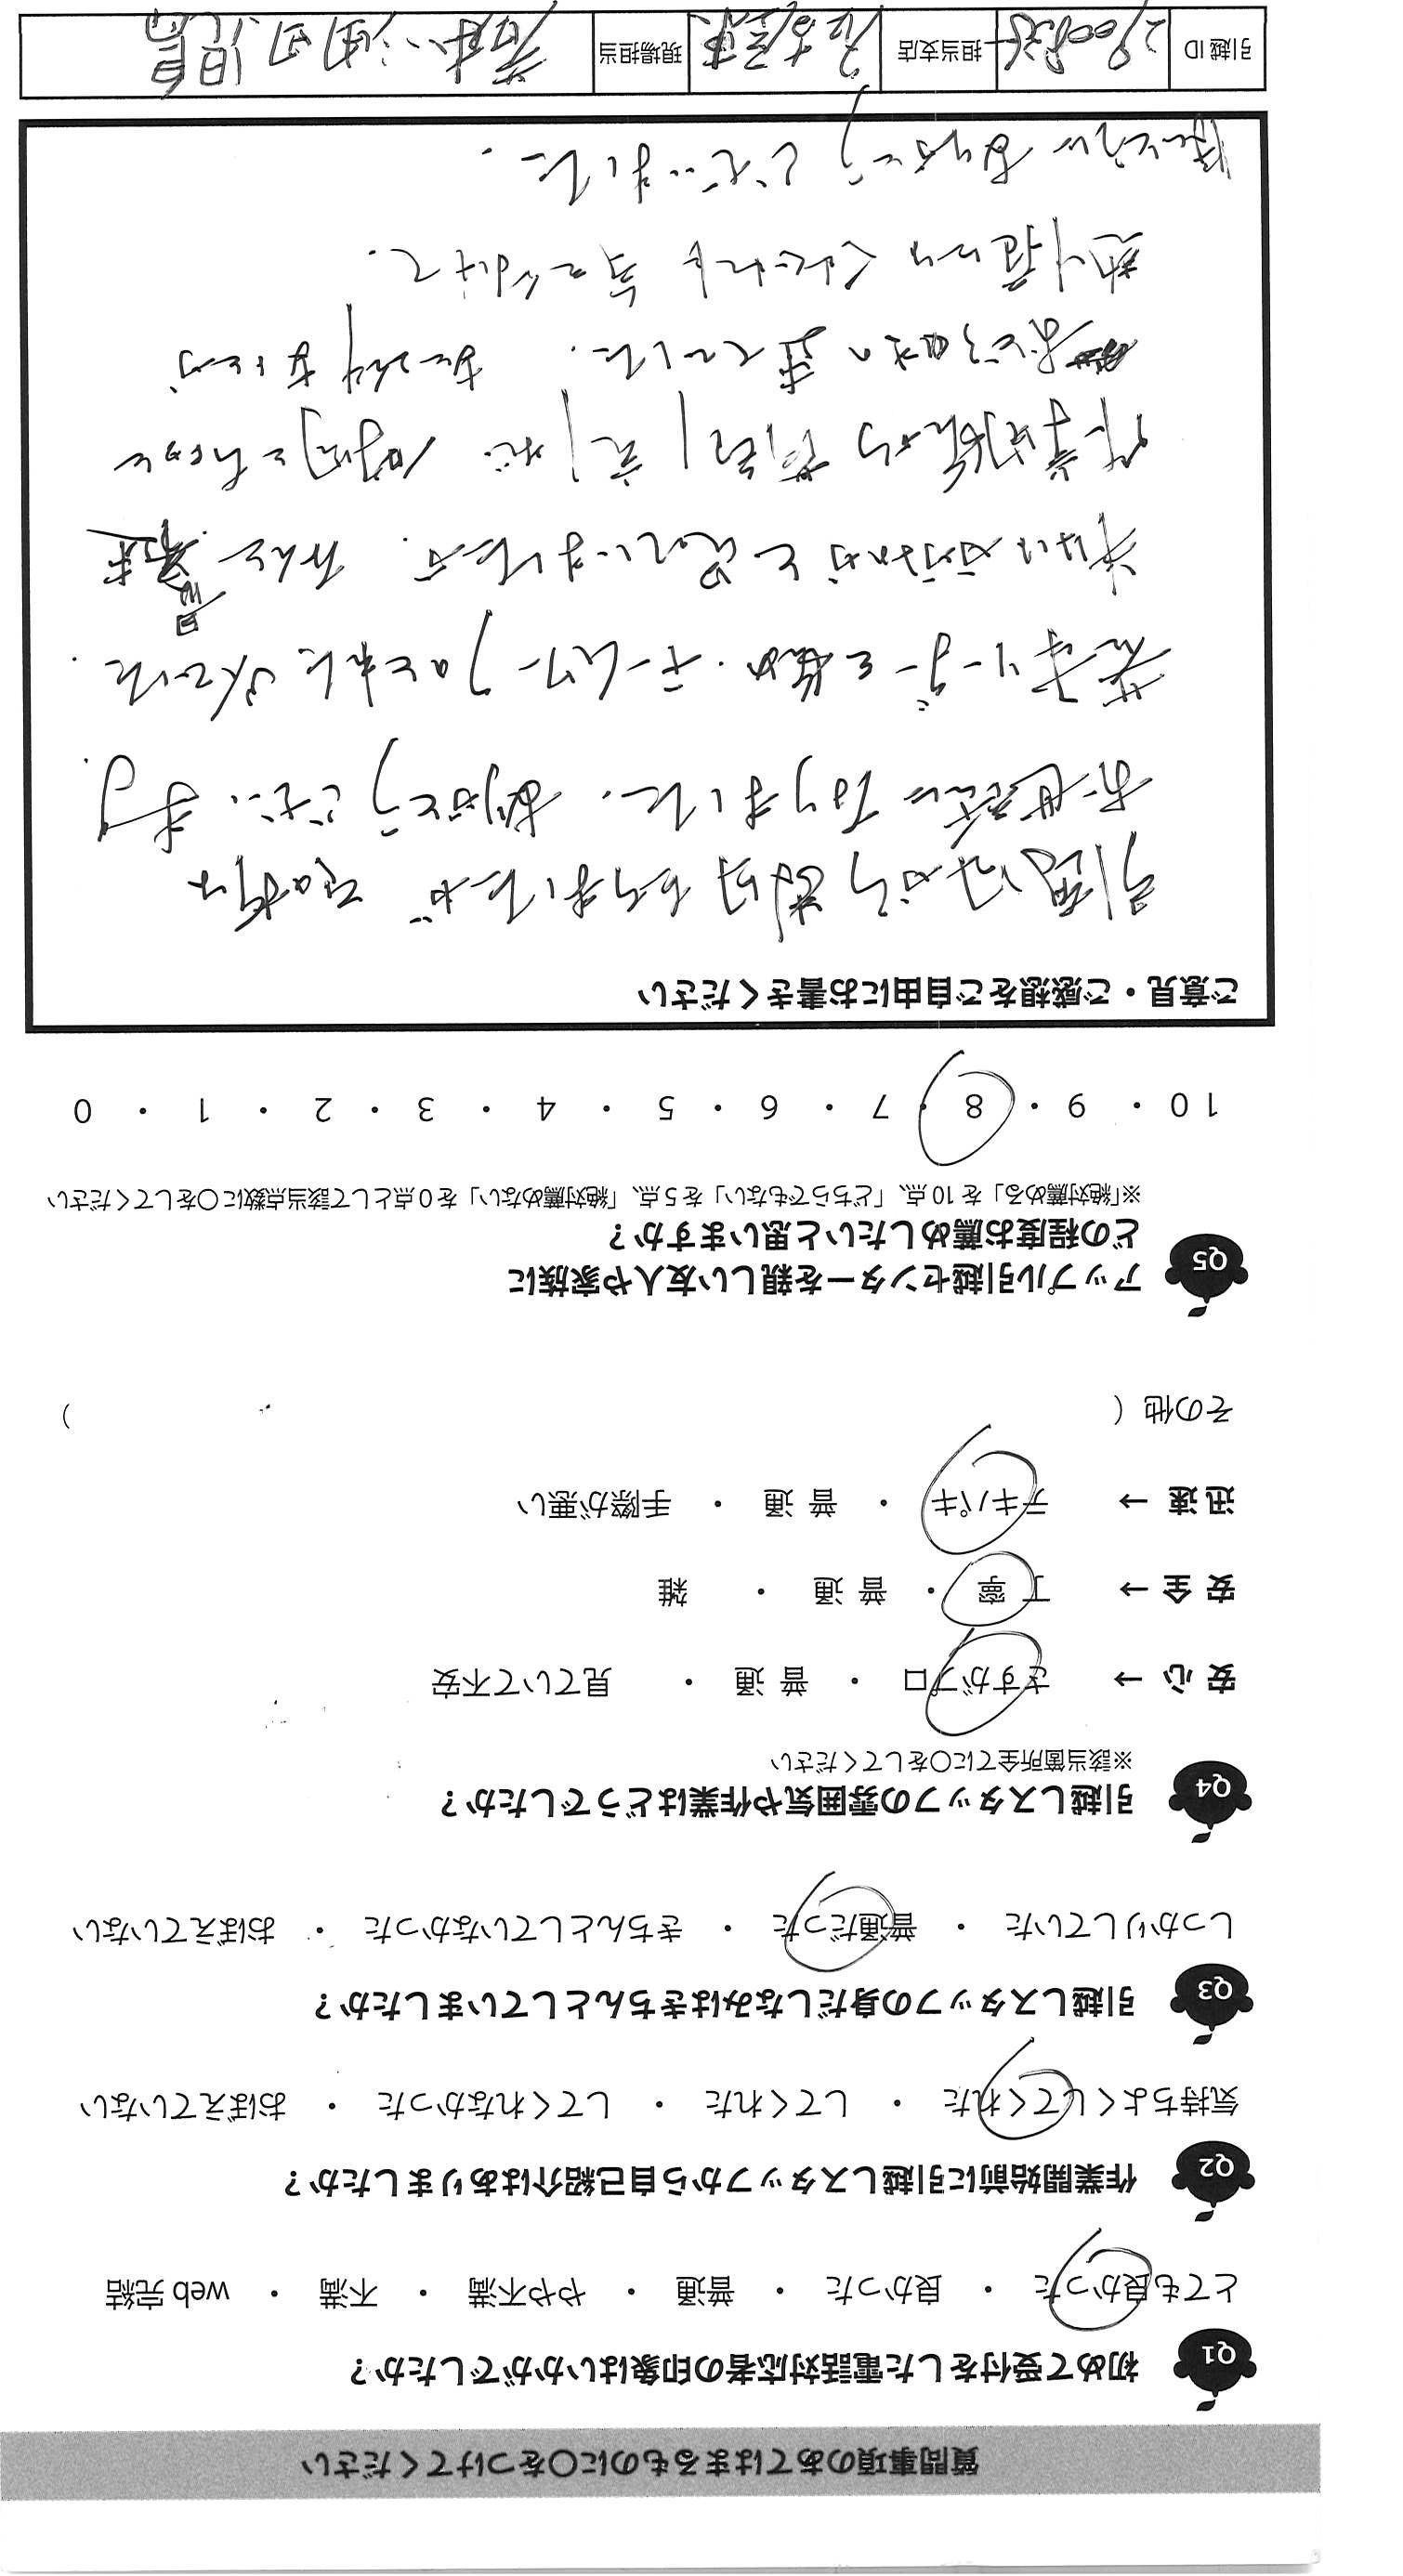 質問事項のあてはまるものに○をつけてください
Q1 初めて受付をした電話対応者の印象はいかがでしたか？
とても良かった ・ 良かった ・ 普通 ・ やや不満 ・ 不満 ・ web 完結
Q2 作業開始前に引越しスタッフから自己紹介はありましたか？
気持ちよくしてくれた ・ してくれた ・ してくれなかった ・ おぼえていない
Q3 引越しスタッフの身だしなみはきちんとしていましたか？
しっかりしていた ・ 普通だった ・ きちんとしていなかった ・ おぼえていない
Q4 引越しスタッフの雰囲気や作業はどうでしたか？
※該当箇所全てに○をしてください
安 心 → さすがプロ ・ 普 通 ・ 見ていて不安
安 全 → 丁 寧 ・ 普 通 ・ 雑
迅 速 → テキパキ ・ 普 通 ・ 手際が悪い
その他（ ）
Q5 アップル引越センターを親しい友人や家族に
どの程度お薦めしたいと思いますか？
※「絶対薦める」を 10 点、「どちらでもない」を 5 点、「絶対薦めない」を 0 点として該当点数に○をしてください
10 ・ 9 ・ 8 ・ 7 ・ 6 ・ 5 ・ 4 ・ 3 ・ 2 ・ 1 ・ 0
ご意見・ご感想をご自由にお書きください
引越してから数日たちましたが その折は
お世話になりました. ありがとうございます.
若きリーダーを始め. チームワーク
と思っていました
作業
でした.
て.
ほんとうに ありがとう ございました.
引越 ID 担当支店 名古屋 現場担当 青木